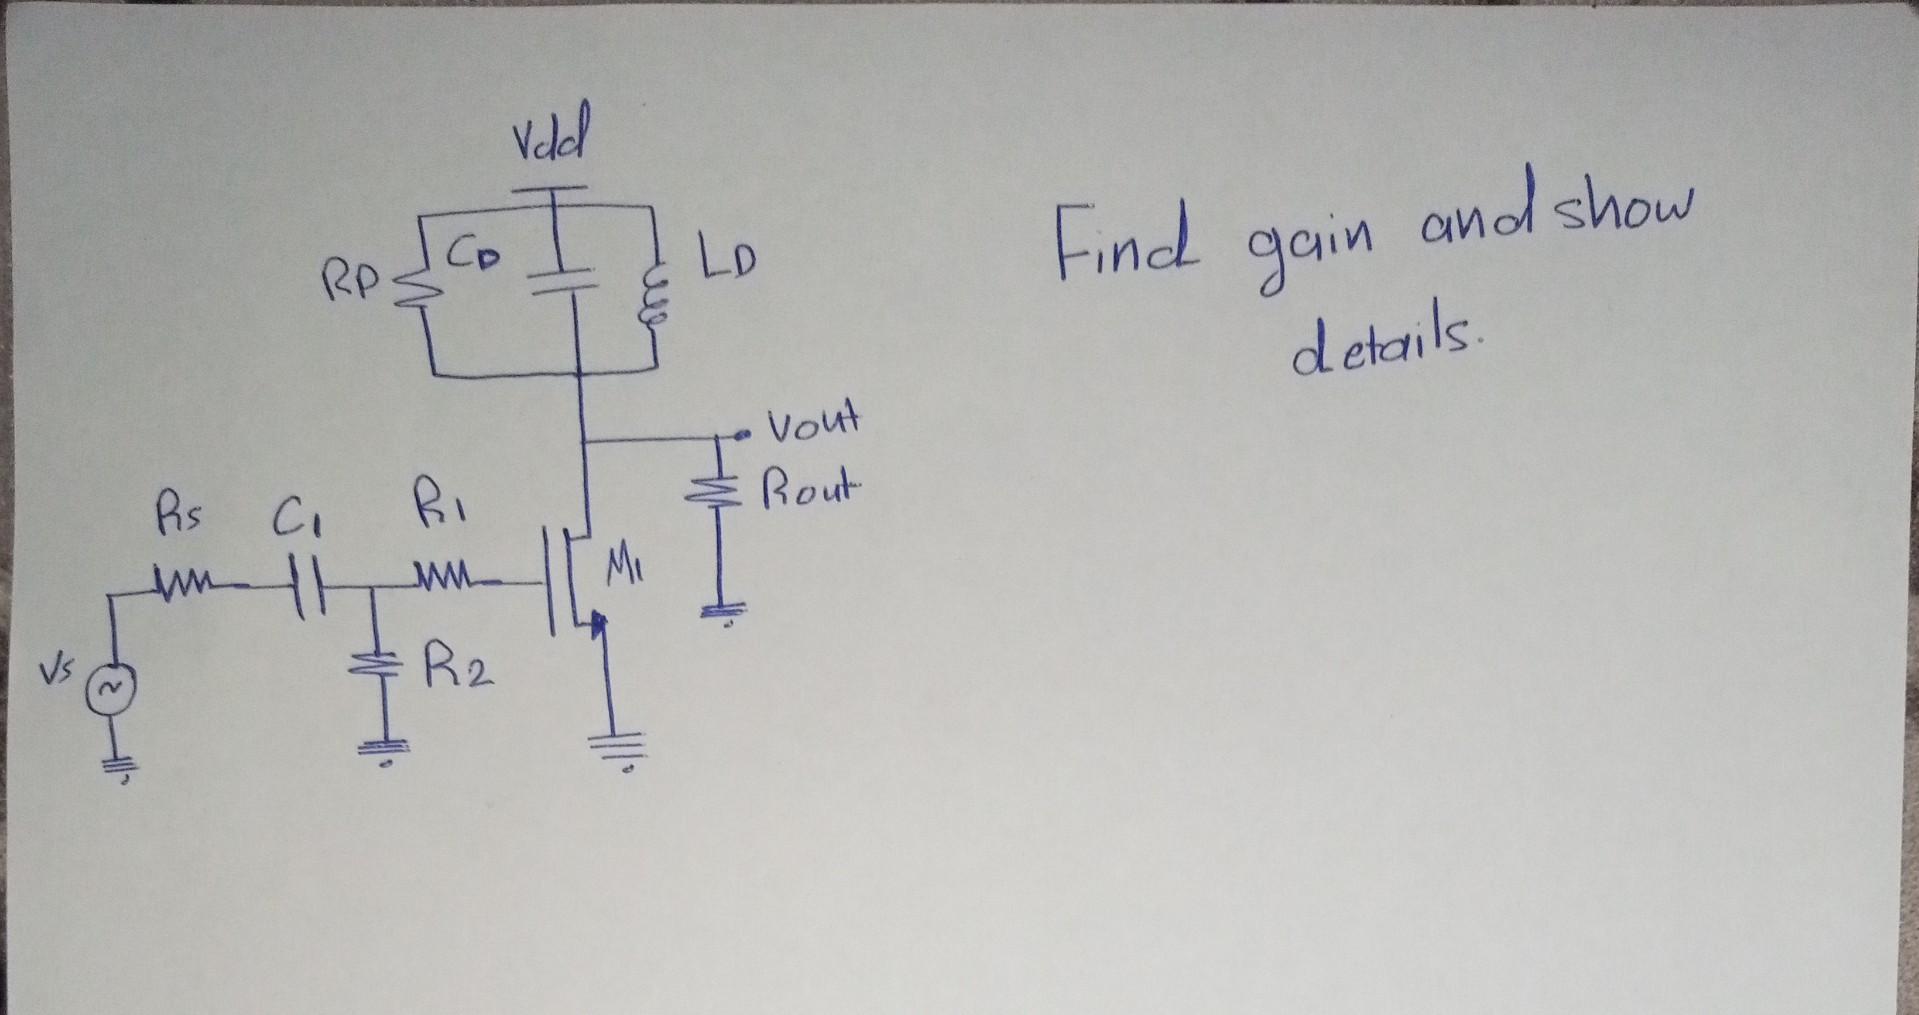 Vdd
RP
CD
LD
Find gain and show
details.
Vout
Rout
Rs
C1
R1
M1
Vs
R2